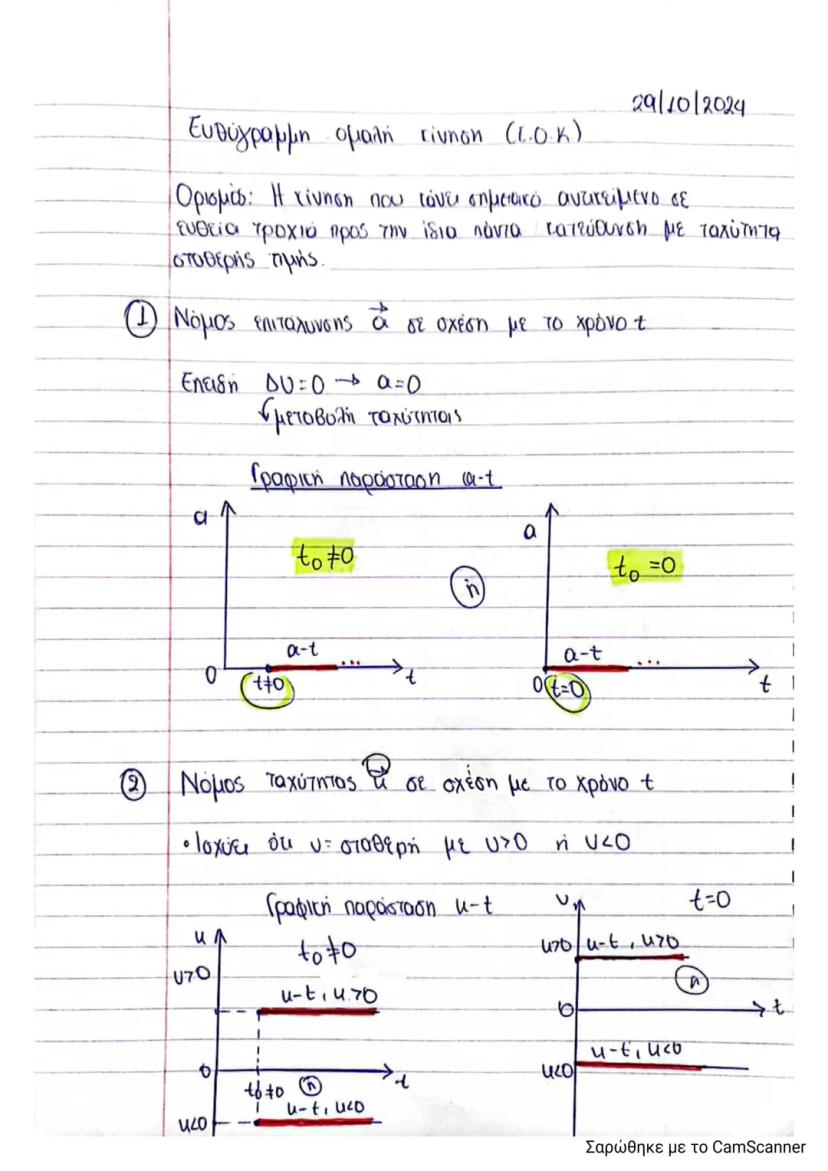 29/10/2024
Ευθύγραμμη ομαλή κίνηση (Ε.Ο.Κ)
Ορισμός: Η κίνηση που κάνει σημειακό αντικείμενο σε
ευθεία τροχιά προς την ίδια πάντα κατεύθυνση με ταχύτητα
σταθερής τιμής.
① Νόμος επιτάχυνσης a⃗ σε σχέση με το χρόνο t
Επειδή ΔU=0 → a=0
μεταβολή ταχύτητας
Γραφική παράσταση a-t
a
t₀≠0
a-t
...
0
t≠0
t
ή
a
t₀=0
a-t
...
0
t=0
t
② Νόμος ταχύτητας u⃗ σε σχέση με το χρόνο t
• Ισχύει ότι υ= σταθερή με U>0 ή U<0
Γραφική παράσταση u-t
u
t₀≠0
U>0
u-t, u>0
0
t₀≠0
ή
t
u-t, u<0
u<0
υ
t=0
u>0
u-t, u>0
ή
0
t
u-t, u<0
u<0
Σαρώθηκε με το CamScanner